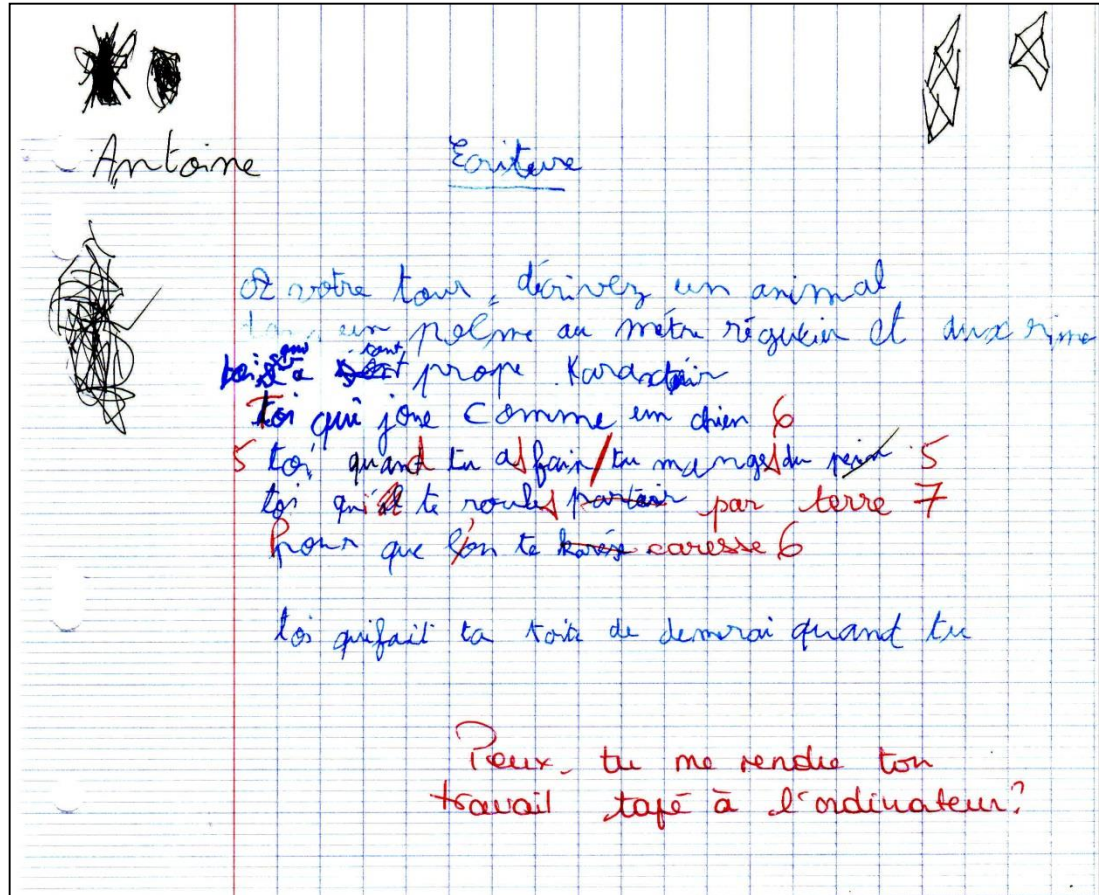 Antoine
Ecriture
A votre tour, décrivez un animal
dans un poème au mètre régulier et aux rime
qui a tant prope Karactair
Toi qui joue comme un chien 6
5 toi quand tu as fain / tu manges du pain 5
toi qui te roules par terre 7
Pour que l'on te caresse 6
toi qui fait ta toite de demerai quand tu
Peux-tu me rendre ton
travail tapé à l'ordinateur?